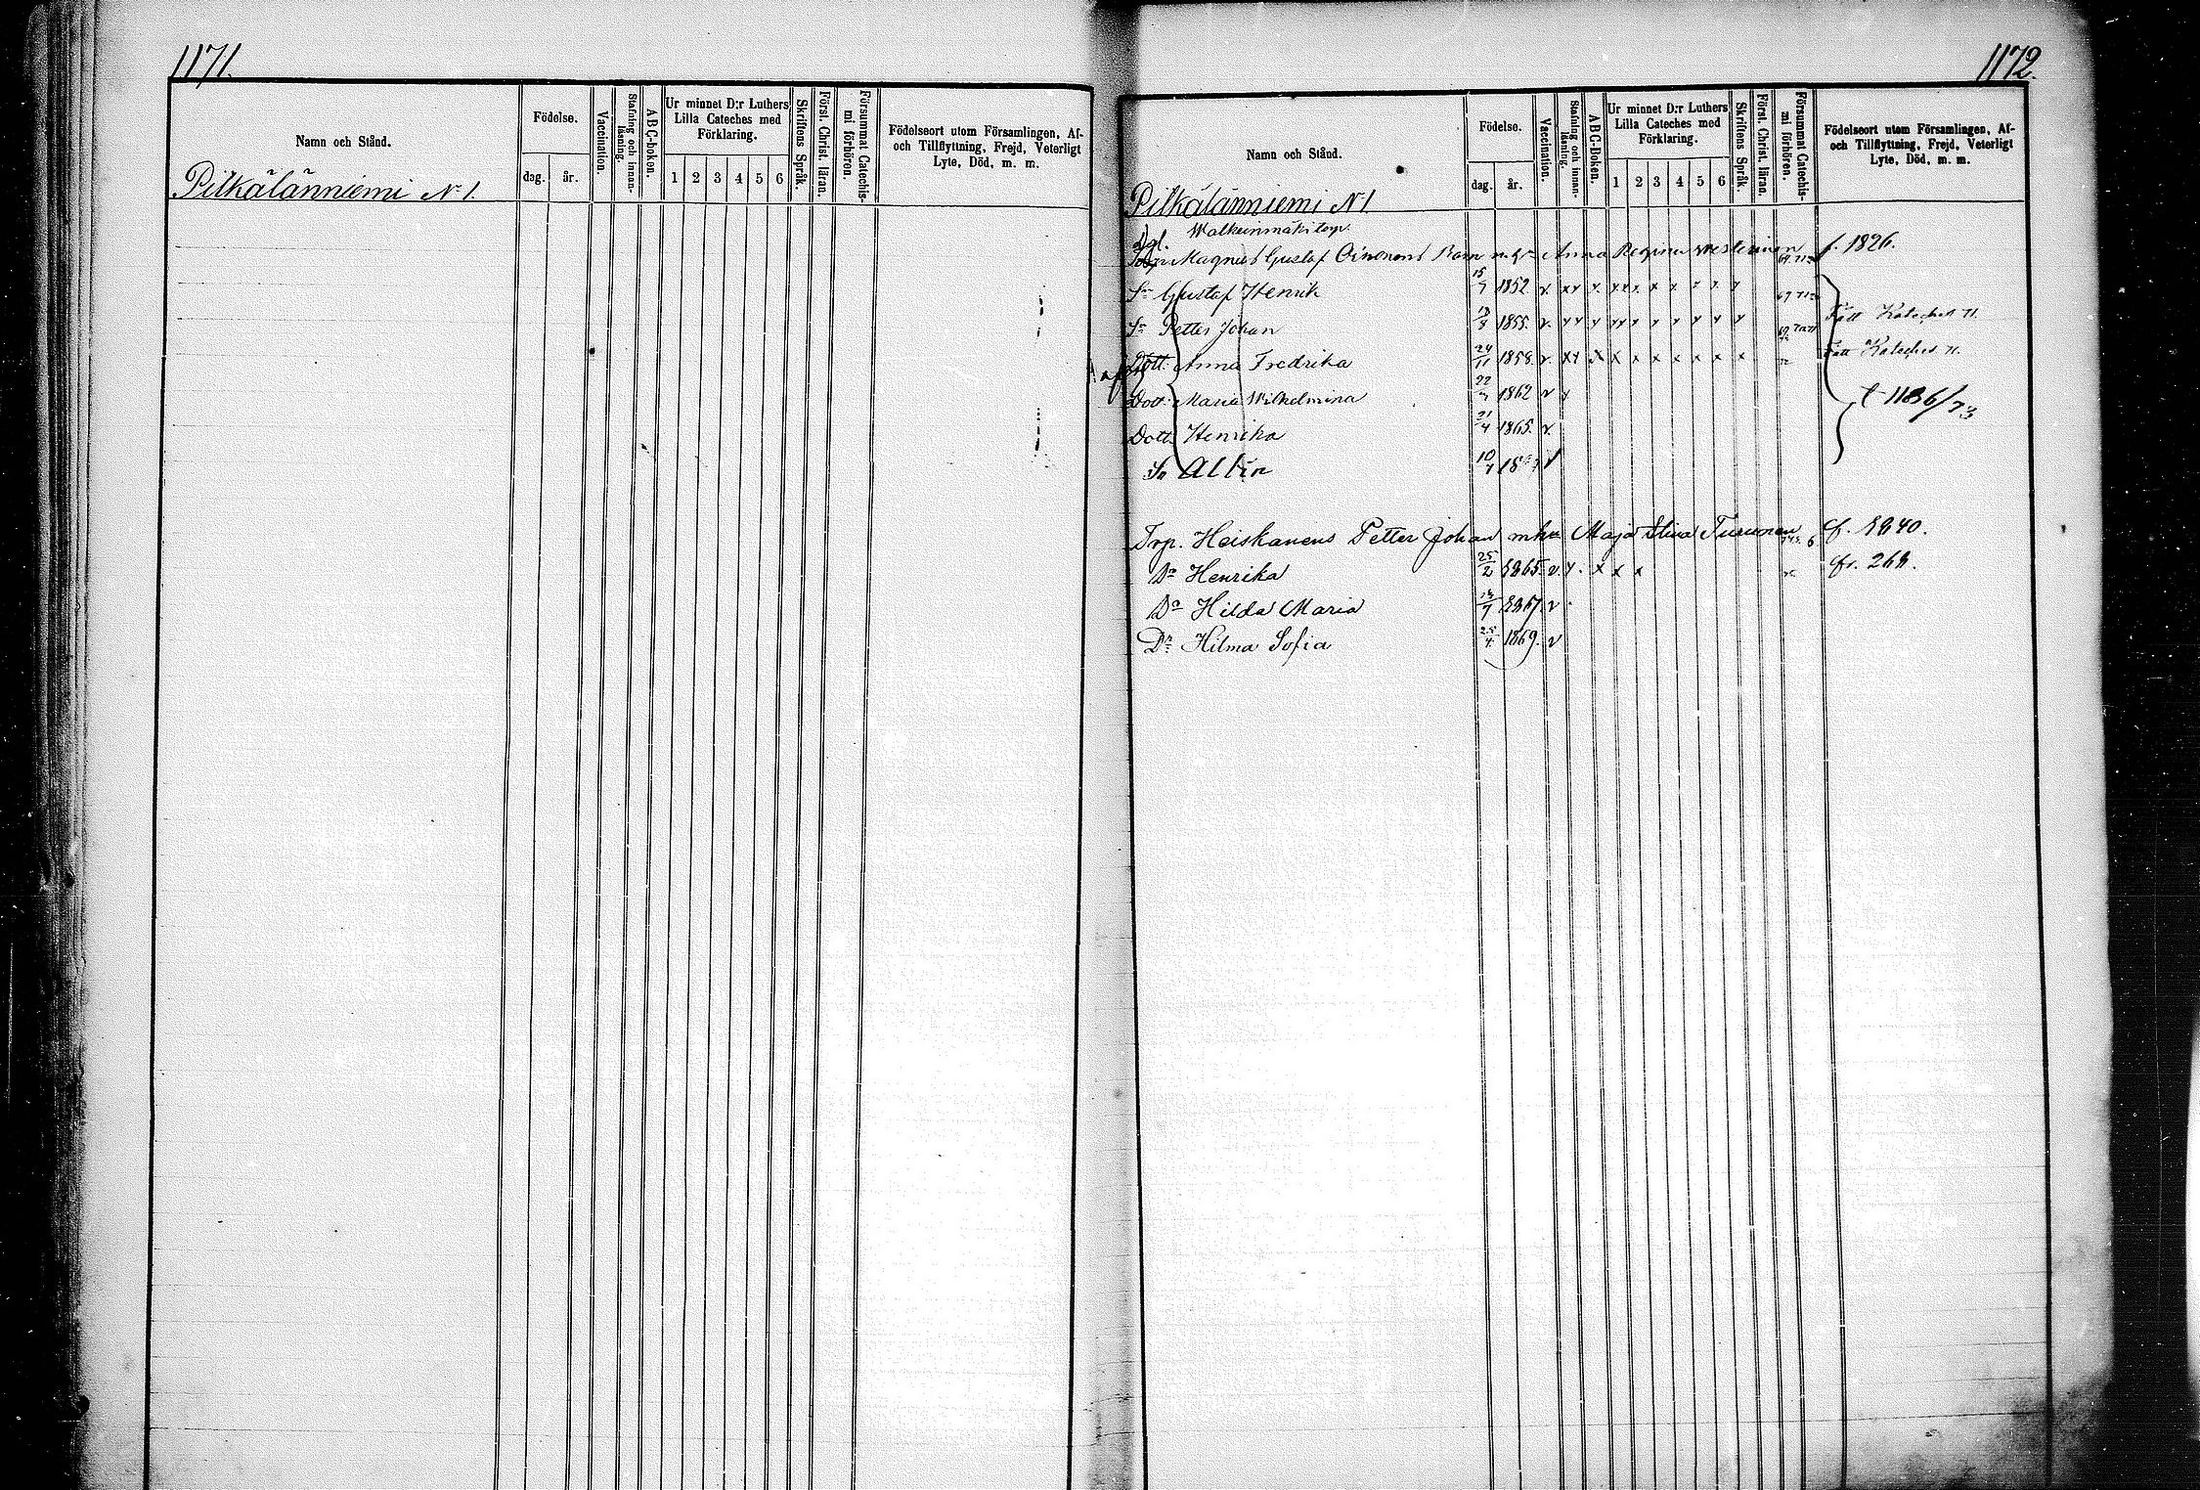 1171.
Namn och Stånd.
Födelse.
dag.
år.
Vaccination.
Stafning och innan-
läsning.
ABC-boken.
Ur minnet D:r Luthers
Lilla Cateches med
Förklaring.
1 2 3 4 5 6
Skriftens Språk.
Först. Christ. läran.
Försummat Catechis-
mi förhören.
Födelseort utom Församlingen, Af-
och Tillflyttning, Frejd, Veterligt
Lyte, Död, m. m.
Pitkälänniemi N:o 1.
1172.
Namn och Stånd.
Födelse.
dag.
år.
Vaccination.
Stafning och innan-
läsning.
ABC-Boken.
Ur minnet D:r Luthers
Lilla Cateches med
Förklaring.
1 2 3 4 5 6
Skriftens Språk.
Först. Christ. läran.
Försummat Catechis-
mi förhören.
Födelseort utom Församlingen, Af-
och Tillflyttning, Frejd, Veterligt
Lyte, Död, m. m.
Pitkälänniemi N:o 1.
Walkeinmäki torp.
Magnus Gustaf Oinonens Barn m. h. Anna Regina Westerinen f. 1826.
Sn Gustaf Henrik 15/7 1852. v. x x x x x x x x x x
Sn Petter Johan 1855. v. x x x x x x x x x x Fått Kateches 71.
Dott. Anna Fredrika 24/11 1858. v. x x x x x x x x x x Fått Kateches 71.
Dott. Maria Wilhelmina 22/7 1862 v x
t 1136/73
Dott. Henrika 21/4 1865. v.
Sn Albin 10/7 v
Trp. Heiskanens Petter Johan mhu Maja Stina Turunen f. 1840.
Dr Henrika 25/2 1865. v x x x x fr. 268.
Dr Hilda Maria 1867. v
Dr Hilma Sofia 25/4 1869. v